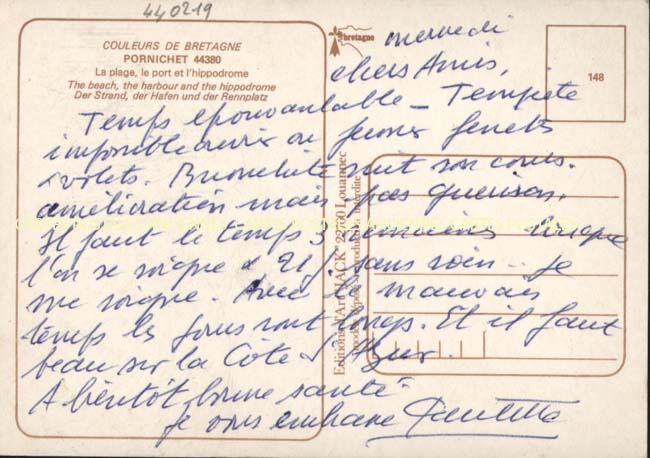 440219
COULEURS DE BRETAGNE
PORNICHET 44380
La plage, le port et l'hippodrome
The beach, the harbour and the hippodrome
Der Strand, der Hafen und der Rennplatz
bretagne
148
mercredi
chers Amis,
Temps épouvantable - Tempête
impossible ouvrir ou fermer fenêtres
volets. Bronchite suit son cours.
amélioration mais pas guérison.
Il faut le temps 3 semaines lorsque
l'on se soigne & 21 j. sans soin... je
me soigne. Avec le mauvais
temps les jours sont longs. Et il faut
beau sur la Côte d'Azur.
A bientôt, bonne santé
je vous embrasse
Editions d'Art JACK 22760 Louannec
modèle déposé reproduction interdite